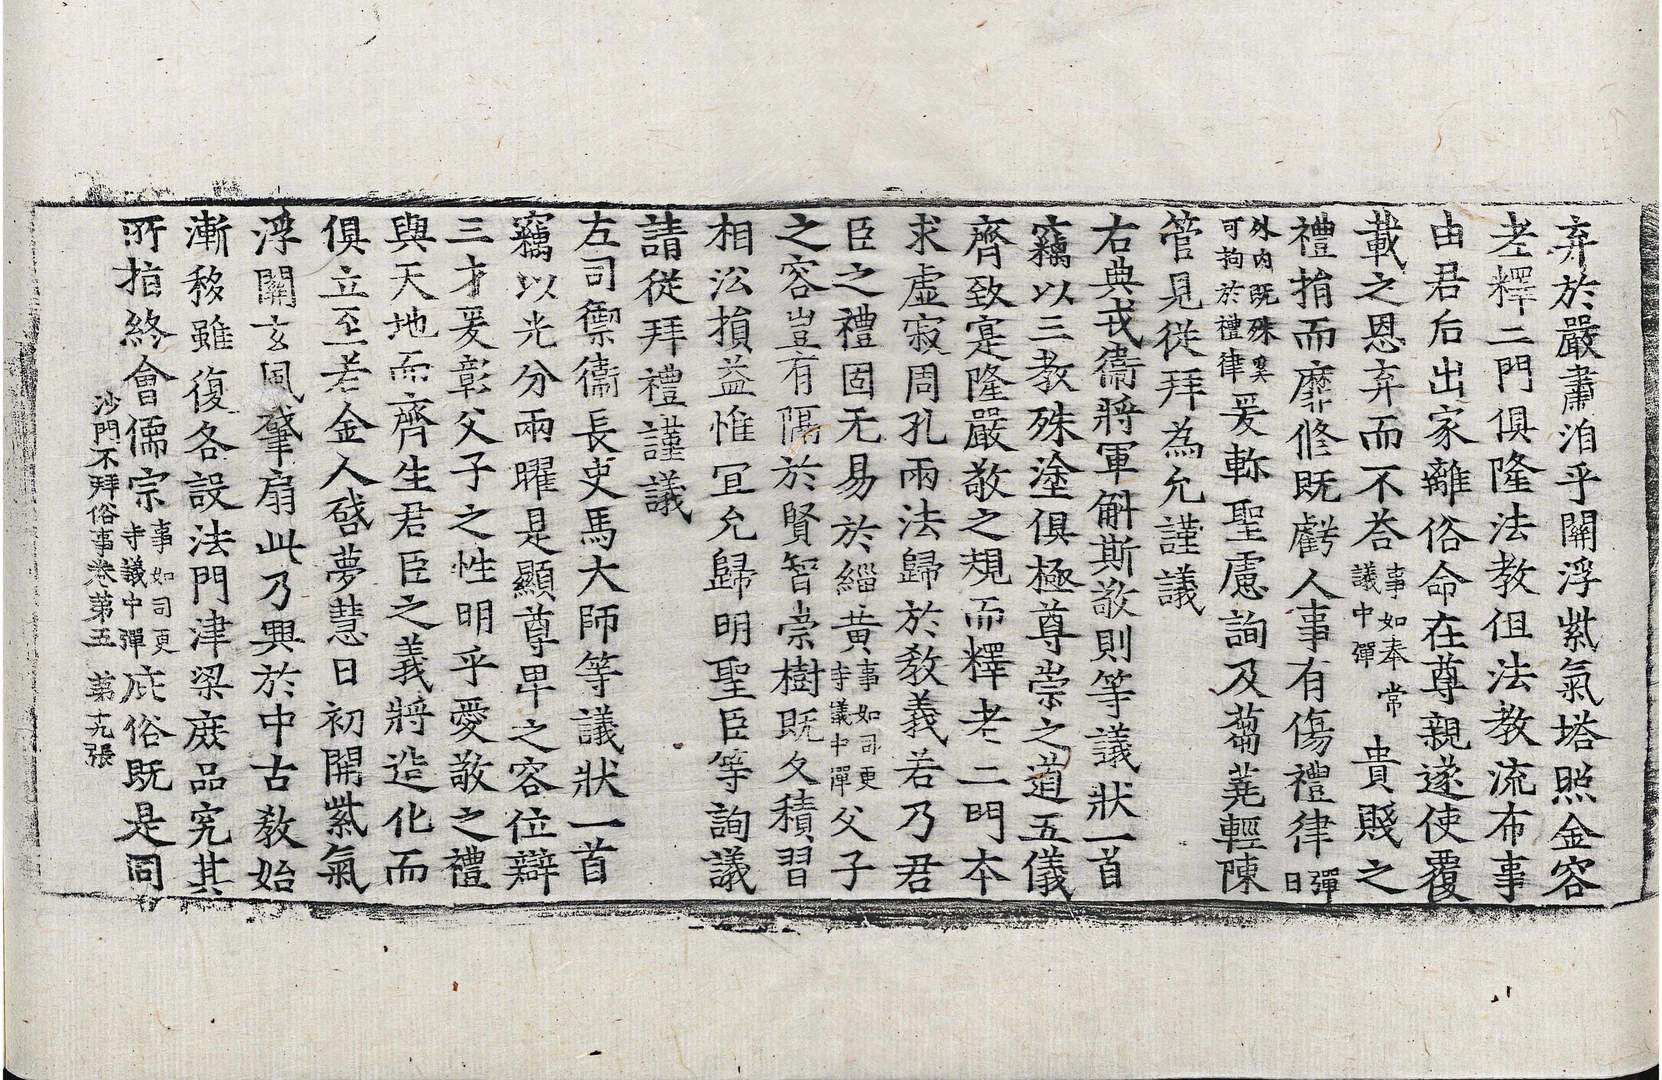 弃於嚴肅洎乎關浮紫氣塔照金容
老釋二門俱隆法教但法教流布事
由君后出家離俗命在尊親遂使覆
載之恩弃而不荅事如奉常議中彈貴賤之
禮捐而靡脩既虧人事有傷禮律彈曰
外內既殊奚可拘於禮律爰軫聖慮詢及蒭蕘輕陳
管見從拜為允謹議
右典戎衛將軍斛斯敬則等議狀一首
竊以三教殊塗俱極尊崇之道五儀
齊致寔隆嚴敬之規而釋老二門本
求虛寂周孔兩法歸於教義若乃君
臣之禮固无易於緇黄事如司更寺議中彈父子
之容豈有隔於賢智崇樹既久積習
相沿損益惟冝允歸明聖臣等詢議
請從拜禮謹議
左司禦衞長吏馬大師等議狀一首
竊以光分兩曜是顯尊卑之容位辯
三才爰彰父子之性明乎愛敬之禮
與天地而齊生君臣之義將造化而
俱立至若金人啓夢慧日初開紫氣
浮關玄風肇扇此乃興於中古教始
漸移雖復各設法門津梁庶品究其
所指終會儒宗事如司更寺議中彈庇俗既是同
沙門不拜俗事卷第五 第十九張